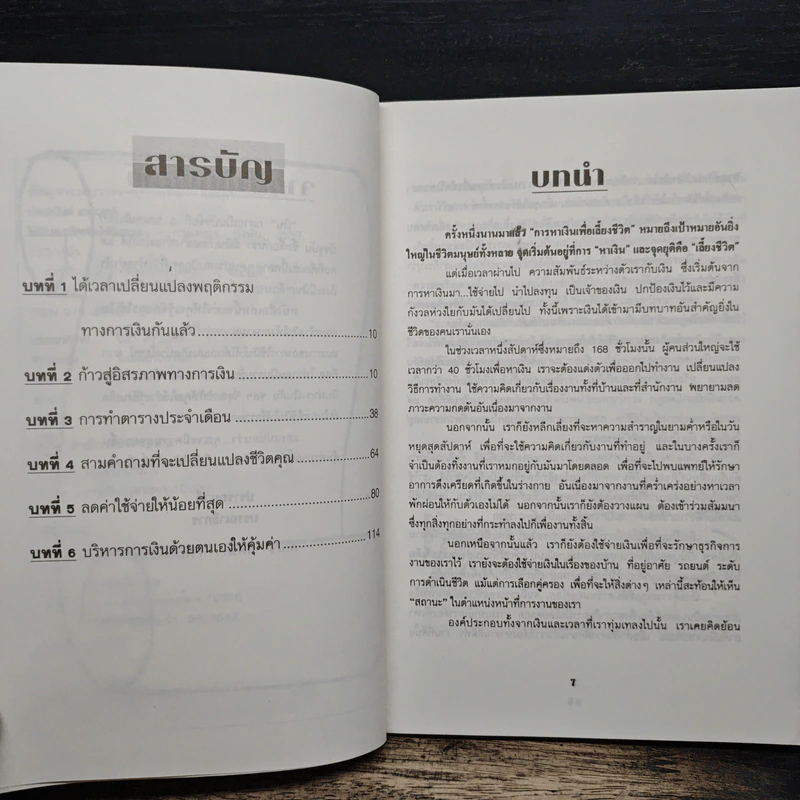 สารบัญ
บทที่ 1 ได้เวลาเปลี่ยนแปลงพฤติกรรม
ทางการเงินกันแล้ว 10
บทที่ 2 ก้าวสู่อิสรภาพทางการเงิน 10
บทที่ 3 การทำตารางประจำเดือน 38
บทที่ 4 สามคำถามที่จะเปลี่ยนแปลงชีวิตคุณ 64
บทที่ 5 ลดค่าใช้จ่ายให้น้อยที่สุด 80
บทที่ 6 บริหารการเงินด้วยตนเองให้คุ้มค่า 114
บทนำ
ครั้งหนึ่งนานมาแล้ว "การหาเงินเพื่อเลี้ยงชีวิต" หมายถึงเป้าหมายอันยิ่ง
ใหญ่ในชีวิตมนุษย์ทั้งหลาย จุดเริ่มต้นอยู่ที่การ "หาเงิน" และจุดยุติคือ "เลี้ยงชีวิต"
แต่เมื่อเวลาผ่านไป ความสัมพันธ์ระหว่างตัวเรากับเงิน ซึ่งเริ่มต้นจาก
การหาเงินมา...ใช้จ่ายไป นำไปลงทุน เป็นเจ้าของเงิน ปกป้องเงินไว้และมีความ
กังวลห่วงใยกับมันได้เปลี่ยนไป ทั้งนี้เพราะเงินได้เข้ามามีบทบาทอันสำคัญยิ่งใน
ชีวิตของคนเรานั่นเอง
ในช่วงเวลาหนึ่งสัปดาห์ซึ่งหมายถึง 168 ชั่วโมงนั้น ผู้คนส่วนใหญ่จะใช้
เวลากว่า 40 ชั่วโมงเพื่อหาเงิน เราจะต้องแต่งตัวเพื่อออกไปทำงาน เปลี่ยนแปลง
วิธีการทำงาน ใช้ความคิดเกี่ยวกับเรื่องงานทั้งที่บ้านและที่สำนักงาน พยายามลด
ภาวะความกดดันอันเนื่องมาจากงาน
นอกจากนั้น เราก็ยังหลีกเลี่ยงที่จะหาความสำราญในยามค่ำหรือในวัน
หยุดสุดสัปดาห์ เพื่อที่จะใช้ความคิดเกี่ยวกับงานที่ทำอยู่ และในบางครั้งเราก็
จำเป็นต้องทิ้งงานที่เราหมกอยู่กับมันมาโดยตลอด เพื่อที่จะไปพบแพทย์ให้รักษา
อาการตึงเครียดที่เกิดขึ้นในร่างกาย อันเนื่องมาจากงานที่คร่ำเคร่งอย่างหาเวลา
พักผ่อนให้กับตัวเองไม่ได้ นอกจากนั้นเราก็ยังต้องวางแผน ต้องเข้าร่วมสัมมนา
ซึ่งทุกสิ่งทุกอย่างที่กระทำลงไปก็เพื่องานทั้งสิ้น
นอกเหนือจากนั้นแล้ว เราก็ยังต้องใช้จ่ายเงินเพื่อที่จะรักษาธุรกิจการ
งานของเราไว้ เรายังจะต้องใช้จ่ายเงินในเรื่องของบ้าน ที่อยู่อาศัย รถยนต์ ระดับ
การดำเนินชีวิต แม้แต่การเลือกคู่ครอง เพื่อที่จะให้สิ่งต่างๆ เหล่านี้สะท้อนให้เห็น
"สถานะ" ในตำแหน่งหน้าที่การงานของเรา
องค์ประกอบทั้งจากเงินและเวลาที่เราทุ่มเทลงไปนั้น เราเคยคิดย้อน
7